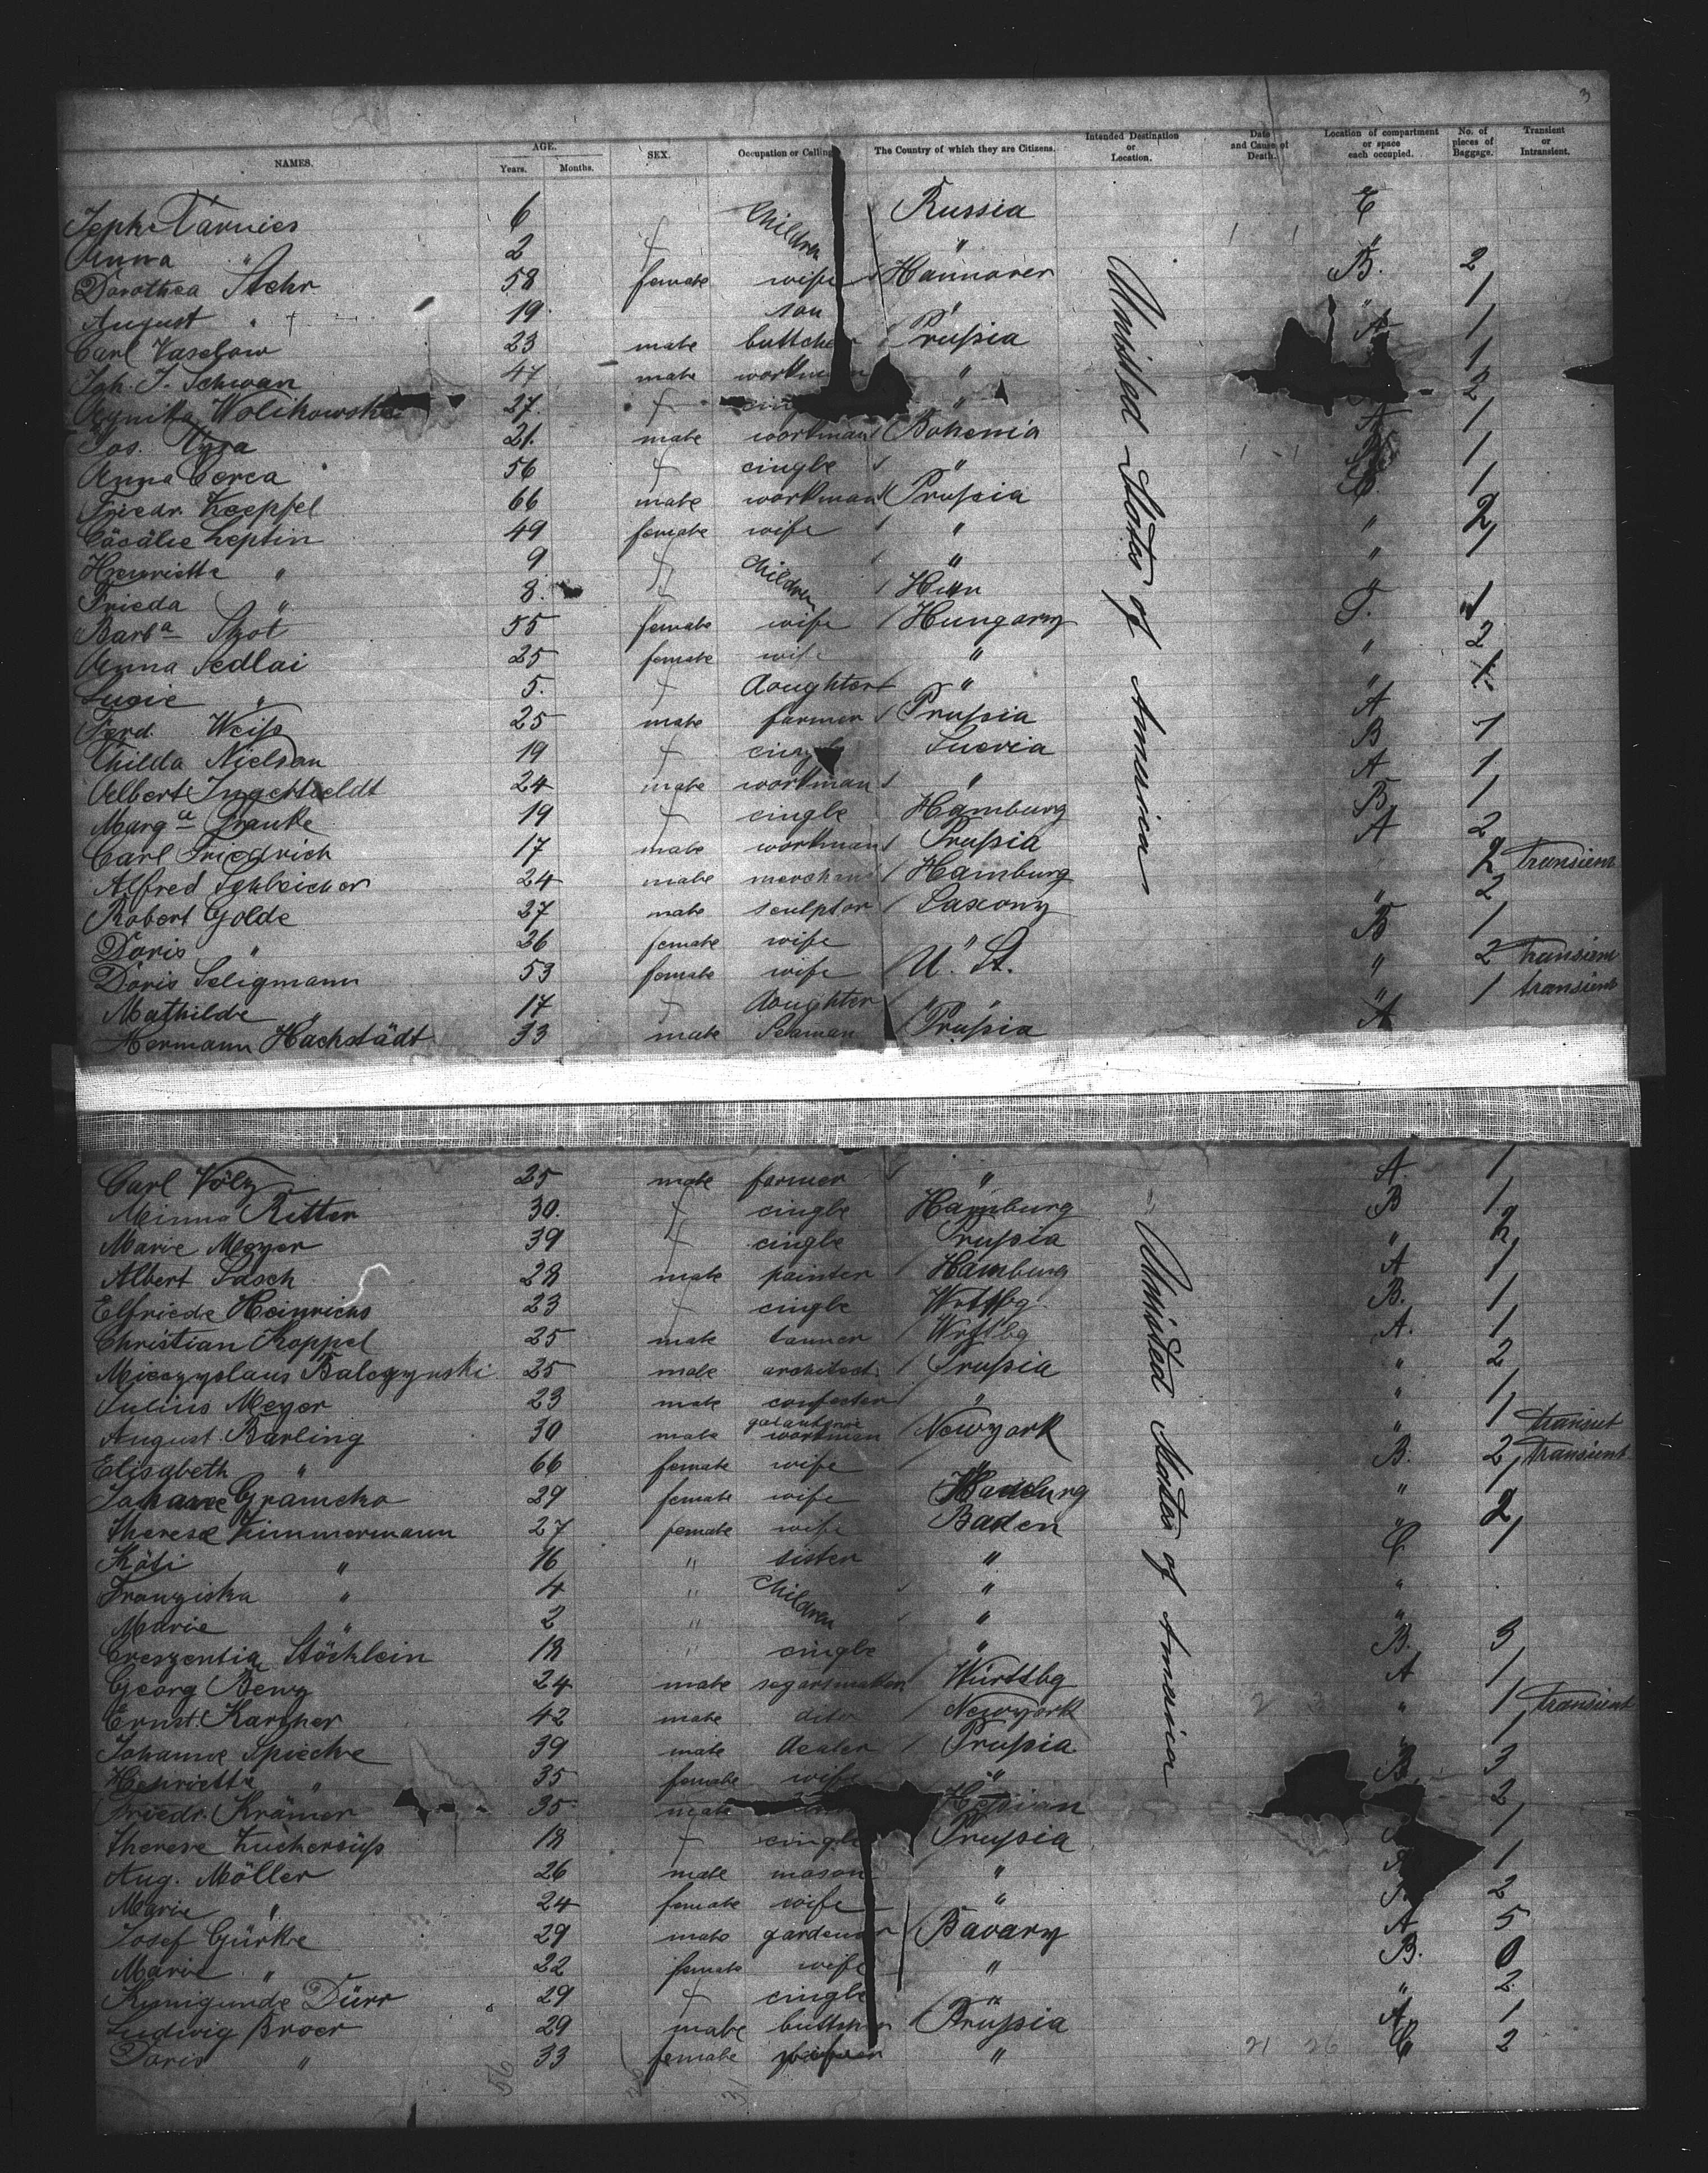 3
NAMES. AGE. Years. Months. SEX. Occupation or Calling The Country of which they are Citizens. Intended Destination or Location. Date and Cause of Death. Location of compartment or space each occupied. No. of pieces of Baggage. Transient or Intransient.
Tarnies 6 f Children Russia E
Anna " 2 f "
Dorothea Stehr 58 female wife Hannover B. 2
August " 19 son " " 1
Carl Vaselow 23 male buttcher Prußia A 1
Joh. J. Schwan 47 male workman " 1
Wolikowska 27. f " 2
Jos. 21. male workman Bohemia A 1
Anna Cerea 56 f cingle " 1
Friedr. Koeppel 66 male workman Prußia 1
Cäcälie Leptin 49 female wife " " 2
Henriette " 9 f Children " " 1
Frieda " 8. f
Barba Skot 55 female wife Hungary F. 1
Anna Sedlai 25 female wife " " 2
Lucie " 5. f doughter " " 1
Ferd. Weiß 25 male farmer Prußia A
Thilda Nielson 19 f Suecia B 1
Albert 24 male workman " A 1
Marga Franke 19 f cingle Hamburg B 1
Carl Friedrich 17 male workman Prußia A 2
Alfred Schleicher 24 male Hamburg 2 transient
Robert Golde 27 male sculptor Saxony " 2
Doris " 26 female wife " B 1
Doris Seligmann 53 female wife U. St. " 2 transient
Mathilde " 17 f doughter " " " 1 transient
Hermann Hachstädt 33 male Seaman Prußia A
Unnited States of America
Carl Völz 25 male farmer " A. 1
Minna Ritter 30. f cingle Hamburg B 1
Marie Meyer 39 f cingle Prußia " 2
Albert Sasch 28 male painter Hamburg A 1
Elfriede Heinrichs 23 f cingle B. 1
Christian Koppel 25 male tanner A. 1
25 male architect Prußia " 2
Julius Meyer 23 male " " 1
August Barling 30 male workman Newyork " 1 transient
Elisabeth " 66 female wife " B. 2 transient
29 female wife " 1
Therese Zimmermann 27 female wife Baden " 2
Käti " 16 " sister " C 1
Franziska " 4 " Children " "
Marie " 2 " " "
Creszentia Stöcklein 18 " cingle " B. 3
Georg Benz 24 male Württbg A 1
Ernst Karcher 42 male dito Newyork " 1 transient
Johanne Spiecke 39 male dealer Prußia " 1
Henriette " 35 female wife " B. 3
Friedr. Krämer 35 male Heßian 2
Therese Zuckersüß 18 f cingle Prußia 1
Aug. Möller 26 male mason " A 1
Marie " 24 female wife " 2
Josef Gürke 29 male gardener Bavary A 5
Marie " 22 female wife " B. 0
Kunigunde Dürr 29 f cingle " " 2
Ludwig Broer 29 male buttcher Prußia A 1
Doris " 33 female " C 2
Unnisted States of America
56
31
21 26